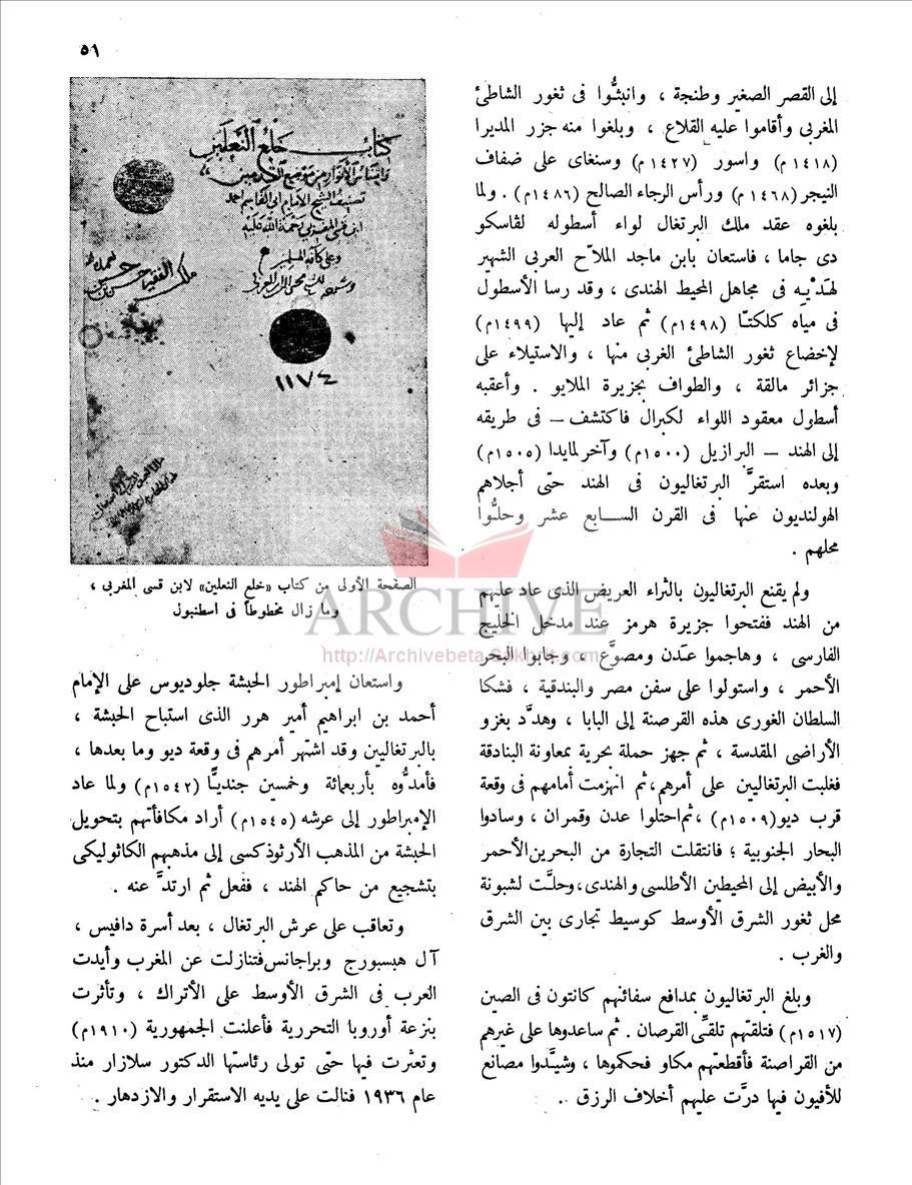 ٥١
إلى القصر الصغير وطنجة ، وانبثُّوا فى ثغور الشاطئ
المغربى وأقاموا عليه القلاع ، وبلغوا منه جزر المديرا
(١٤١٨م) واسور (١٤٢٧م) وسنغاى على ضفاف
النيجر (١٤٦٨م) ورأس الرجاء الصالح (١٤٨٦م) . ولما
بلغوه عقد ملك البرتغال لواء أسطوله لڤاسكو
دى جاما ، فاستعان بابن ماجد الملاّح العربى الشهير
لهَدْيِه فى مجاهل المحيط الهندى ، وقد رسا الأسطول
فى مياه كلكتـّا (١٤٩٨م) ثم عاد إليها (١٤٩٩م)
لإخضاع ثغور الشاطئ الغربى منها ، والاستيلاء على
جزائر مالقة ، والطواف بجزيرة الملايو . وأعقبه
أسطول معقود اللواء لكبرال فاكتشف – فى طريقه
إلى الهند – البرازيل (١٥٠٠م) وآخر لمايدا (١٥٠٥م)
وبعده استقرَّ البرتغاليون فى الهند حتّى أجلاهم
الهولنديون عنها فى القرن السـابع عشر وحلُّوا
محلهم .
ولم يقنع البرتغاليون بالثراء العريض الذى عاد عليهم
من الهند ففتحوا جزيرة هرمز عند مدخل الخليج
الفارسى ، وهاجموا عـَدن ومصوَّع ، وجابوا البحر
الأحمر ، واستولوا على سفن مصر والبندقية ، فشكا
السلطان الغورى هذه القرصنة إلى البابا ، وهدَّد بغزو
الأراضى المقدسة ، ثم جهز حملة بحرية بمعاونة البنادقة
فغلبت البرتغاليين على أمرهم،ثم انهزمت أمامهم فى وقعة
قرب ديو(١٥٠٩م) ،ثم احتلوا عدن وقمران ، وسادوا
البحار الجنوبية ؛ فانتقلت التجارة من البحرين الأحمر
والأبيض إلى المحيطين الأطلسى والهندى،وحلـَّت لشبونة
محل ثغور الشرق الأوسط كوسيط تجارى بين الشرق
والغرب .
وبلغ البرتغاليون بمدافع سفائنهم كانتون فى الصين
(١٥١٧م) فتلقتهم تلقـّى القرصان . ثم ساعدوها على غيرهم
من القراصنة فأقطعتهم مكاو فحكموها ، وشيـَّدوا مصانع
للأفيون فيها درَّت عليهم أخلاف الرزق .
كتاب خلع النعلين
تصنيف الشيخ الامام ابى القاسم احمد
رحمة الله عليه
١١٧٤
الصفحة الأولى من كتاب «خلع النعلين» لابن قسى المغربى ،
وما زال مخطوطاً فى اسطنبول
ARCHIVE
http://Archivebeta.Sakhrit.com
واستعان إمبراطور الحبشة جلوديوس على الإمام
أحمد بن ابراهيم أمير هرر الذى استباح الحبشة ،
بالبرتغاليين وقد اشتهر أمرهم فى وقعة ديو وما بعدها ،
فأمدُّوه بأربعمائة وخمسين جنديـًّا (١٥٤٢م) ولما عاد
الإمبراطور إلى عرشه (١٥٤٥م) أراد مكافأتهم بتحويل
الحبشة من المذهب الأرثوذكسى إلى مذهبهم الكاثوليكى
بتشجيع من حاكم الهند ، ففعل ثم ارتدَّ عنه .
وتعاقب على عرش البرتغال ، بعد أسرة دافيس ،
آل هبسبورج وبراجانس فتنازلت عن المغرب وأيدت
العرب فى الشرق الأوسط على الأتراك ، وتأثرت
بنزعة أوروبا التحررية فأعلنت الجمهورية (١٩١٠م)
وتعثرت فيها حتّى تولى رئاستها الدكتور سلازار منذ
عام ١٩٣٦ فنالت على يديه الاستقرار والازدهار .